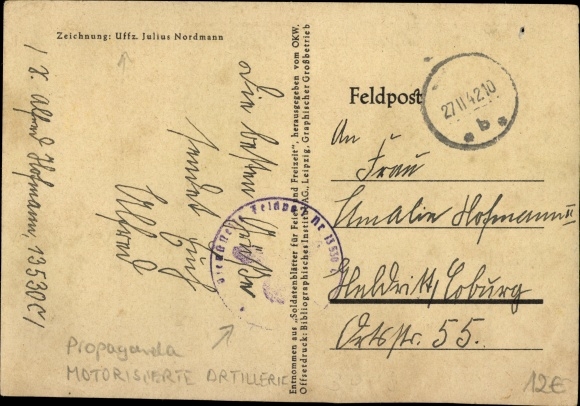 Zeichnung: Uffz. Julius Nordmann
Die besten Grüße
sendet Euch
Alfred
/ z. Alfred Hofmann, 13530 C /
Dienststelle Feldpost Nr 13530 C
Entnommen aus „Soldatenblätter für Feier und Freizeit", herausgegeben vom OKW.
Offsetdruck: Bibliographisches Institut AG., Leipzig, Graphischer Großbetrieb
Feldpost
27 11 42 10
b
An
Frau
Amalie Hofmann II
Heldritt, Coburg
Ortsstr. 55.
Propaganda
MOTORISIERTE ARTILLERIE
12€